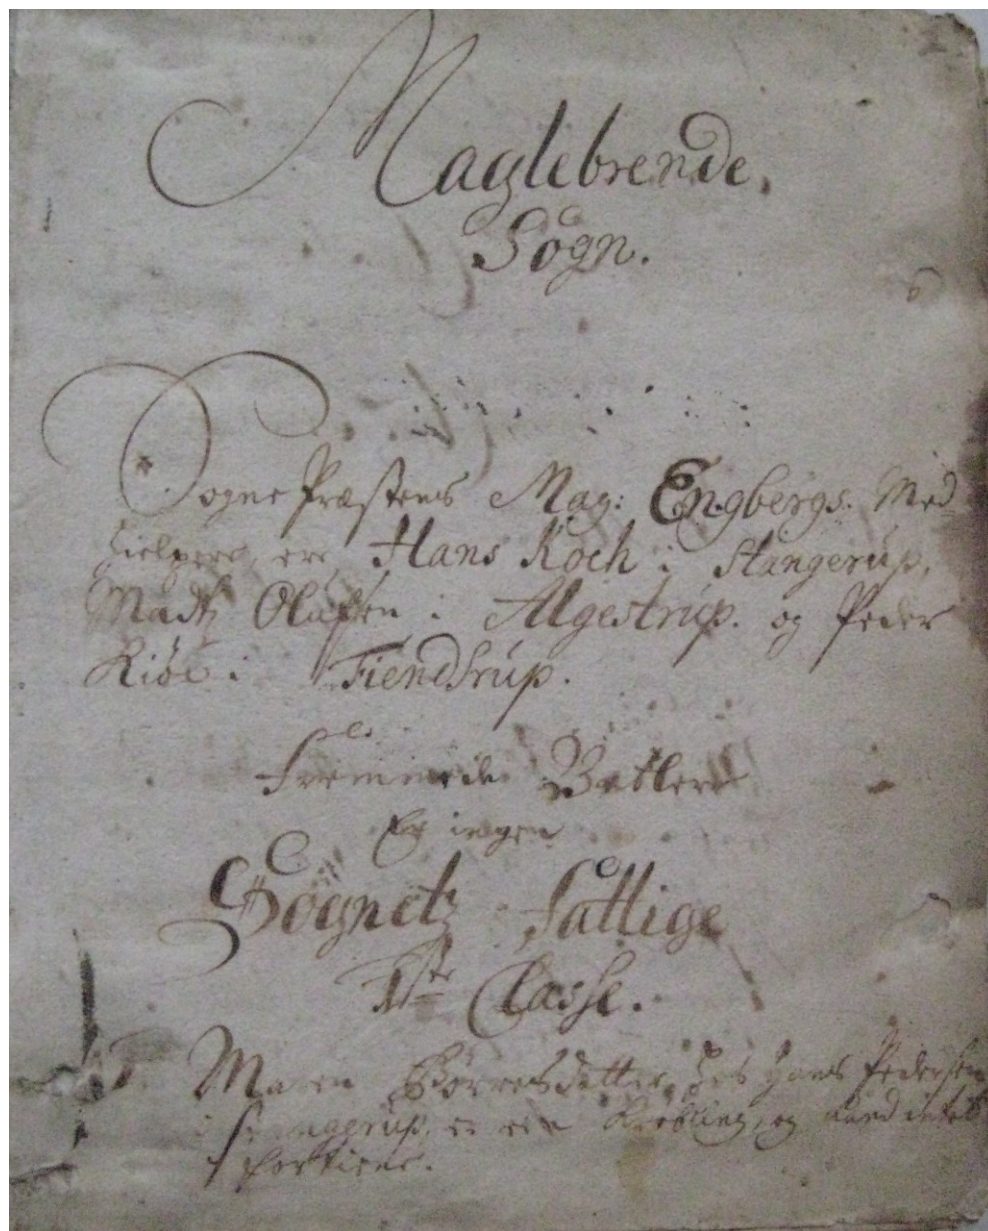 Maglebrende.
Sogn.
Sogne Præstens Mag: Engbergs. Med
hielpere, ere Hans Koch i Stangerup,
Madtz Olufsen i Algestrup. og Peder
i Tiendstrup.
Fremmede Betlere
Er ingen
Sognetz fattige
1ste Classe.
1. Maren hos Hans Pedersen
i Stangerup, er een Krøbling, og kand intet
fortiene.